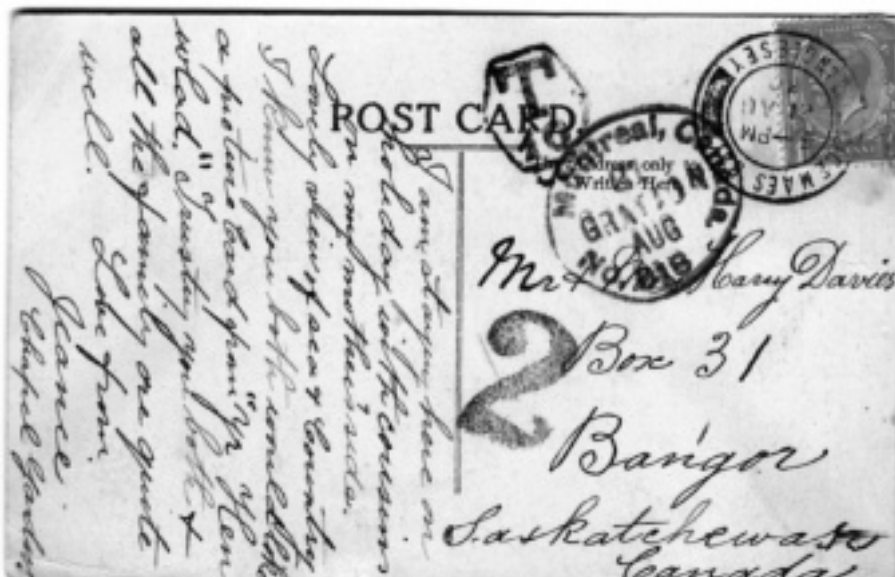 POST CARD.
T
The Address only to be
Written Here
Montreal, Canada.
AUG
2
MAES
Mr & Mrs Harry Davies
Box 31
Bangor
Saskatchewan
Canada
I am staying here on
holiday with cousins
on my mother's side.
Lovely view of sea & Country
I know you both would like
a picture card from "yr Hen
wlad." Trusting you both &
all the family are quite
well. Love from
Jeanee
Chapel